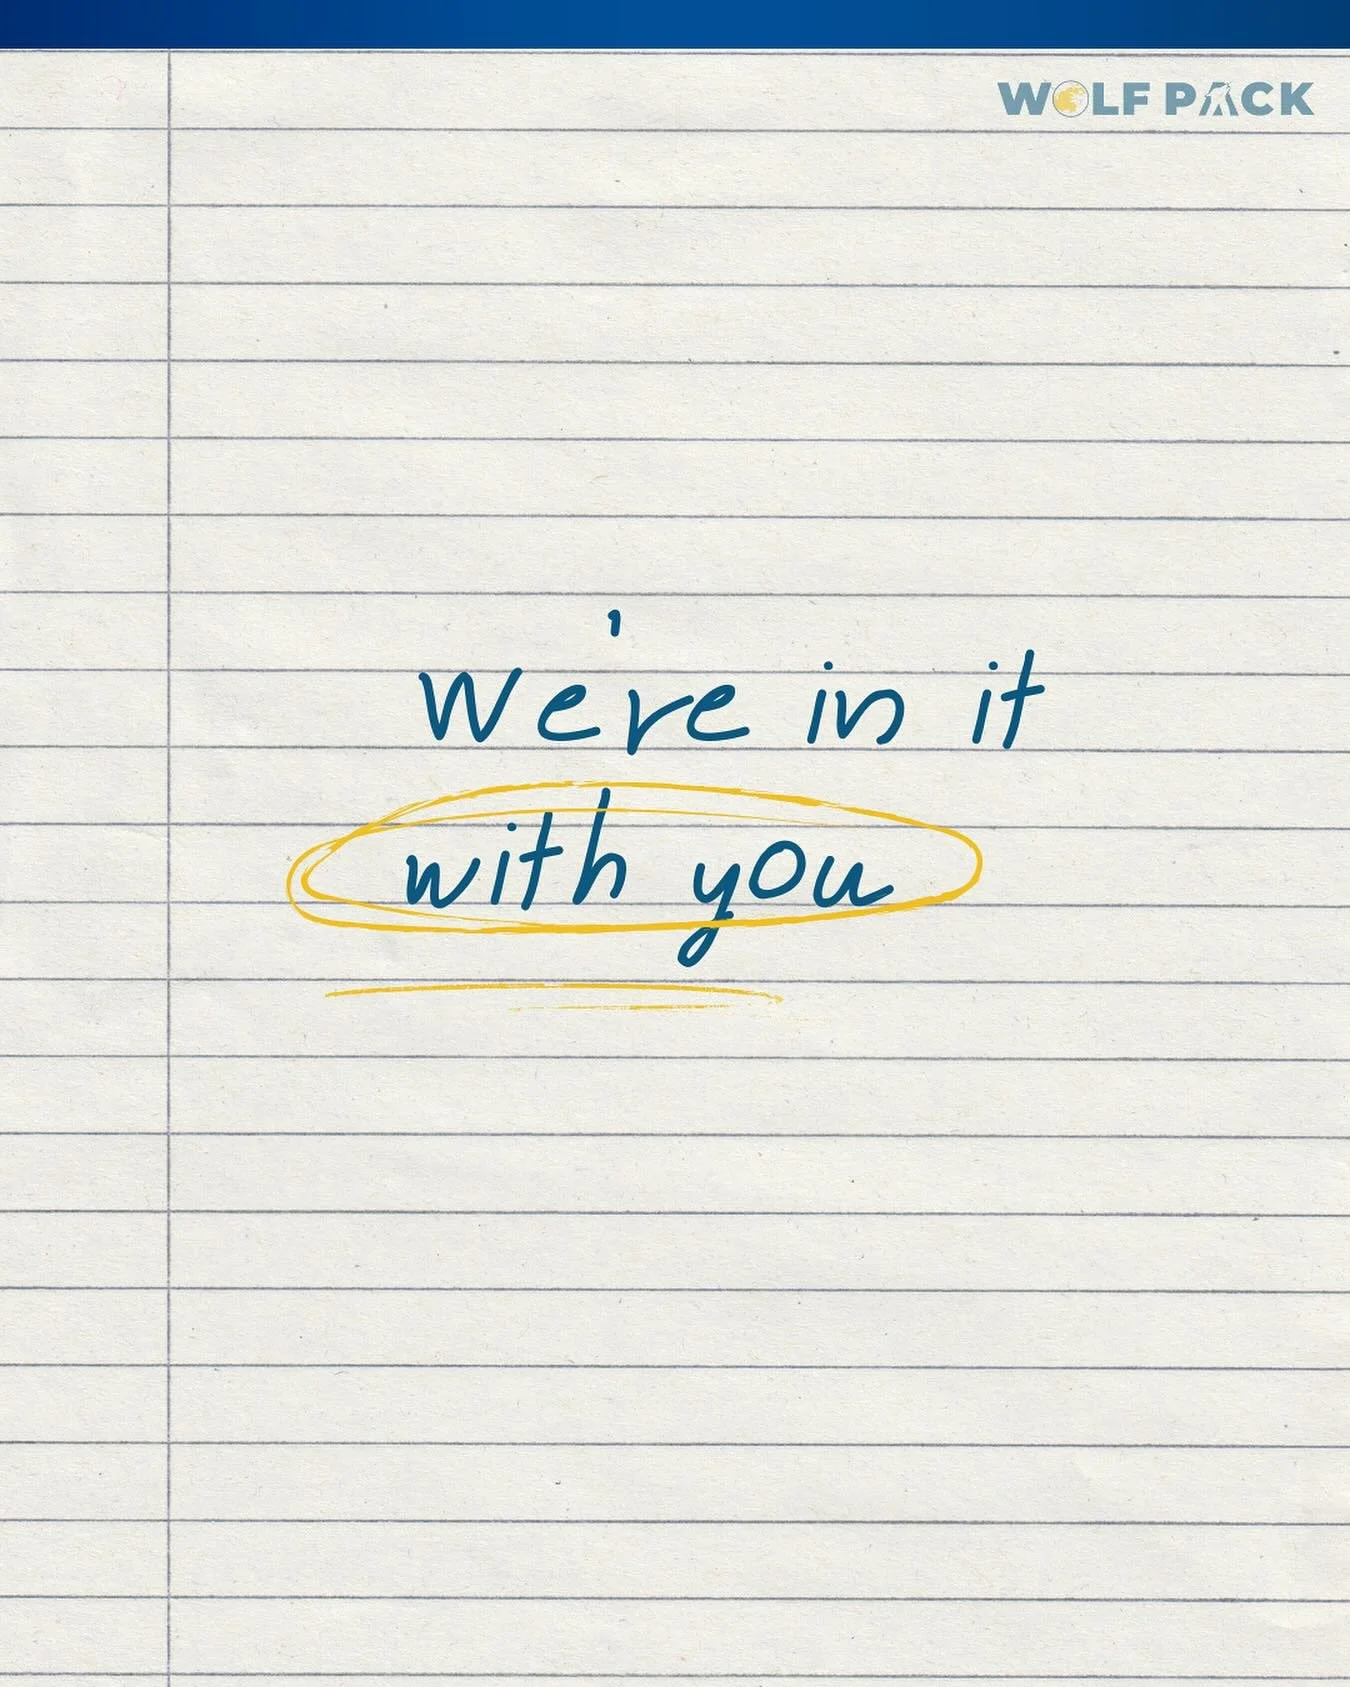 WOLF PACK
We're in it
with you